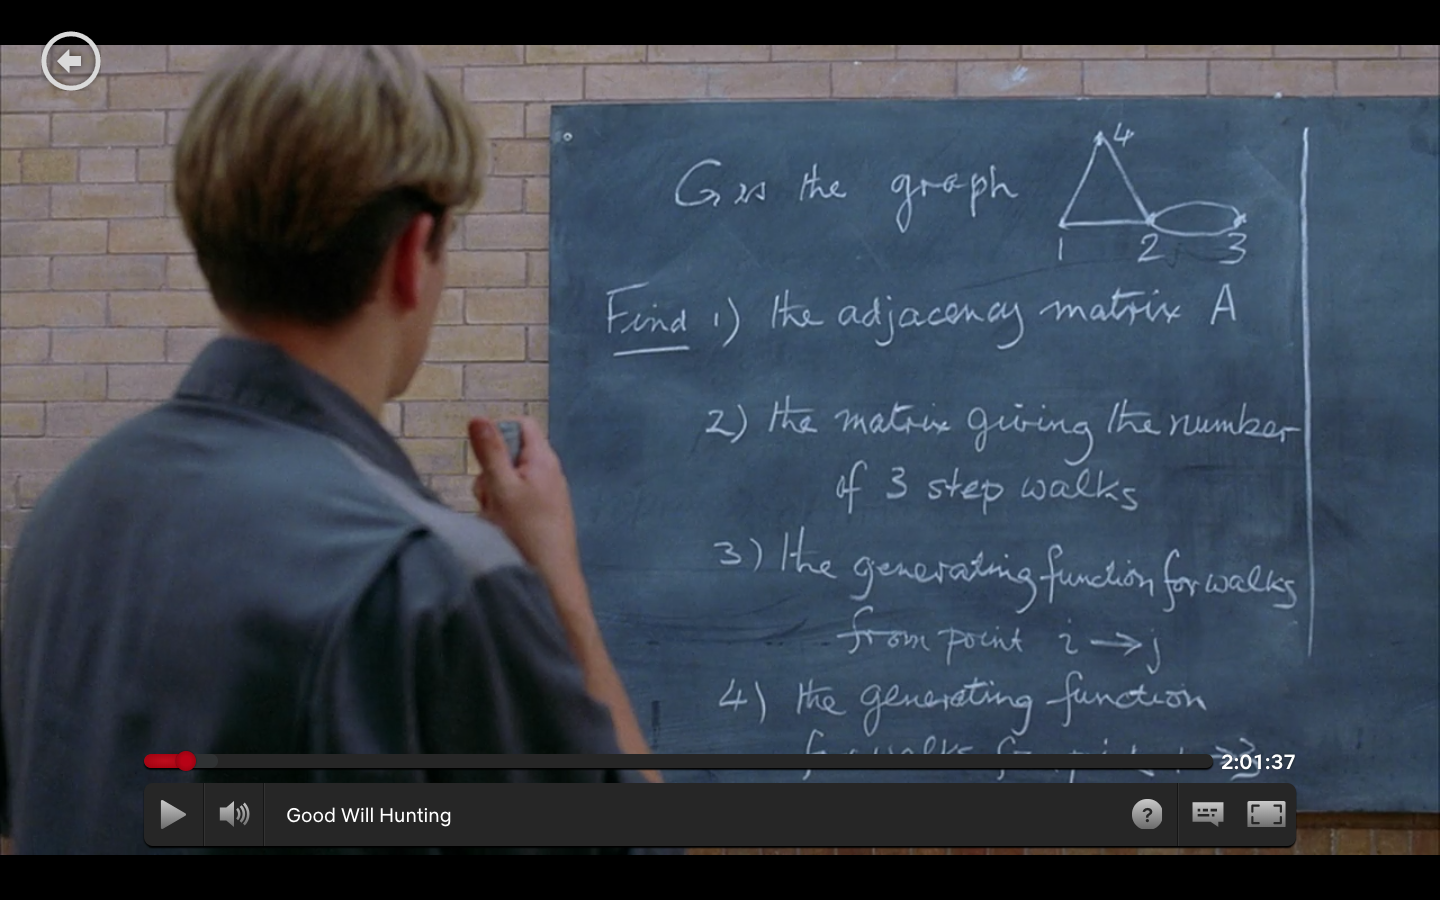 G is the graph
4
1 2 3
Find 1) the adjacency matrix A
2) the matrix giving the number
of 3 step walks
3) the generating function for walks
from point i → j
4) the generating function
2:01:37
Good Will Hunting
?